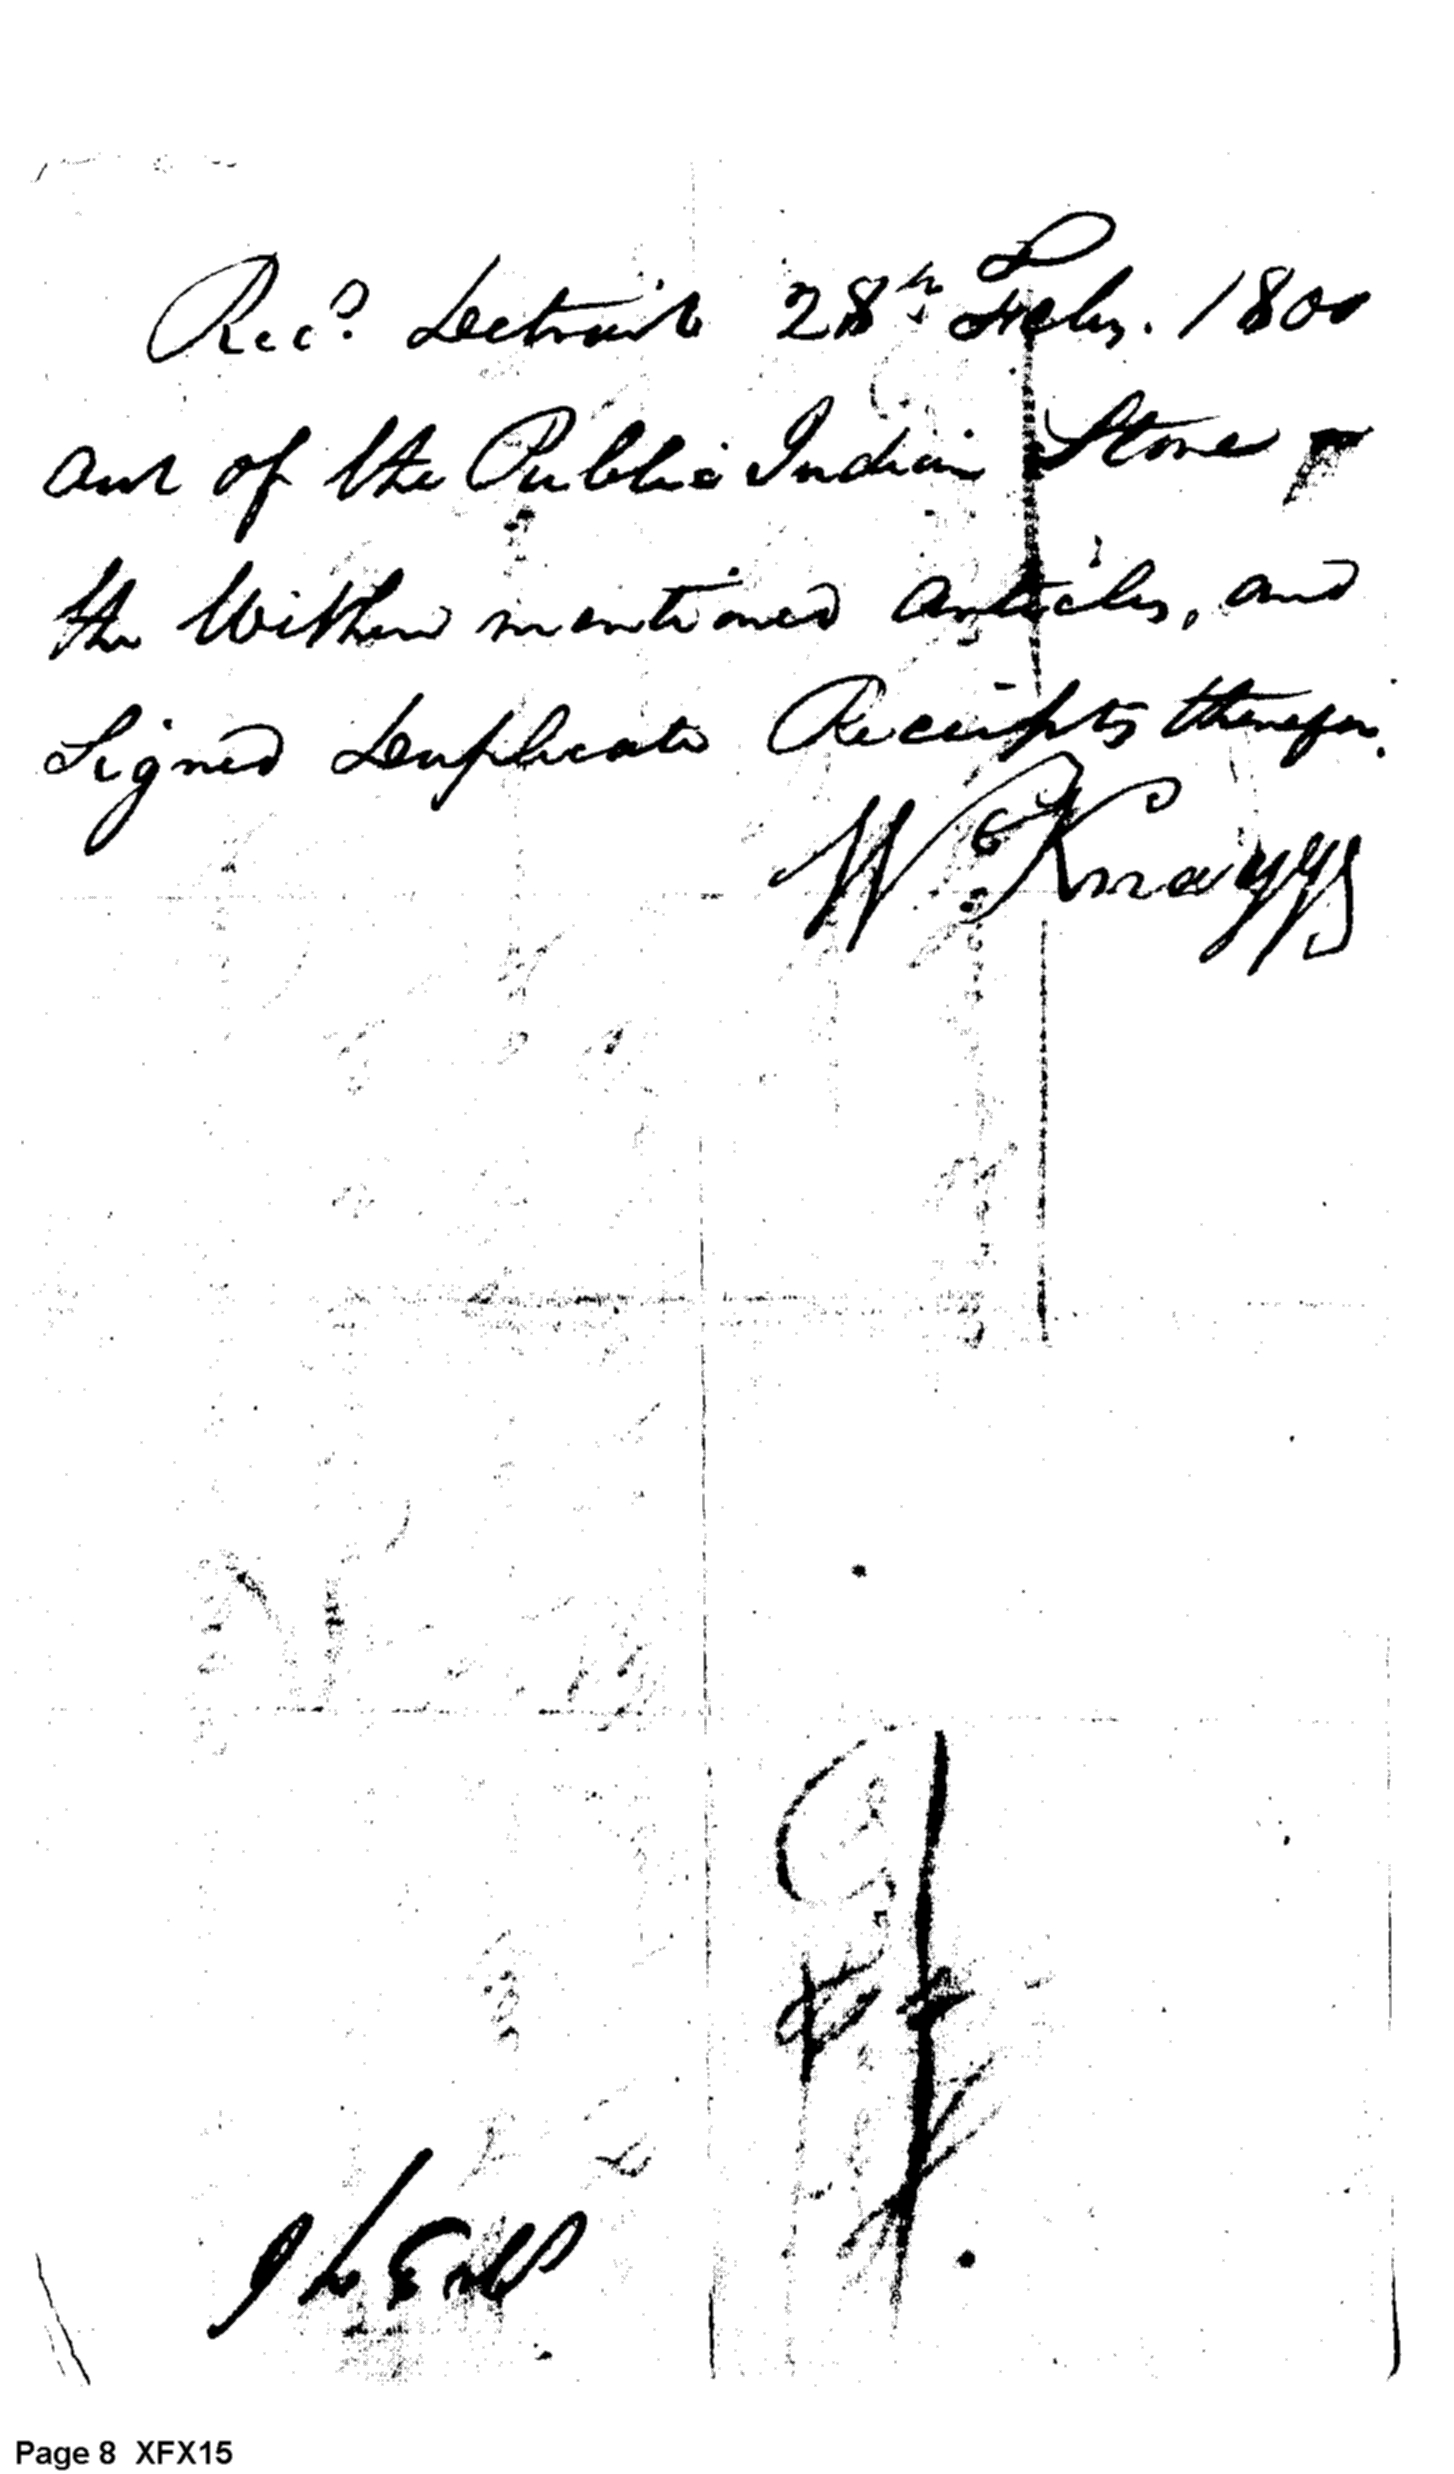 Recd. Detroit 28th Feby. 1800
Out of the Public Indian Store
the Within mentioned Articles, and
Signed Duplicate Receipts therefor.
Wm Knaggs
Page 8 XFX15